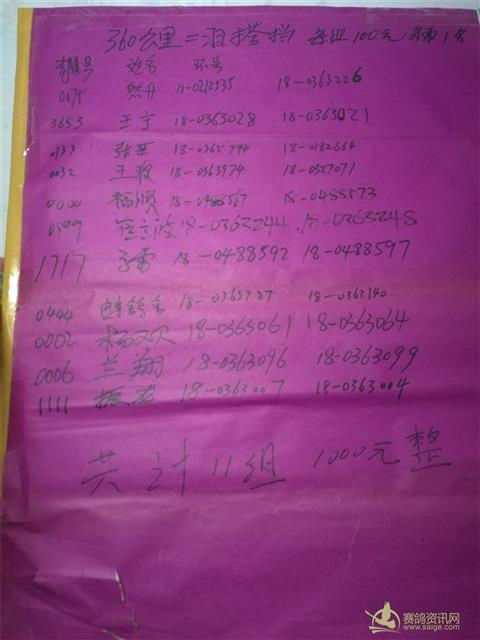 360公里二羽搭档 每组100元 录取1名
棚号 姓名 环号
0075 18-0212535 18-0363226
3653 王宁 18-0363028 18-0363021
0133 张臣 18-0365794 18-0182664
0032 王 18-0363974 18-0327071
0000 杨顺 18-0488567 18-0488573
18-0363244 18-0363248
1717 雷 18-0488592 18-0488597
0444 18-0363737 18-0363140
0002 杨双 18-0363061 18-0363064
0006 兰翔 18-0363096 18-0363099
1111 振 18-0363007 18-0363004
共计11组 1000元整
赛鸽资讯网
www.saige.com